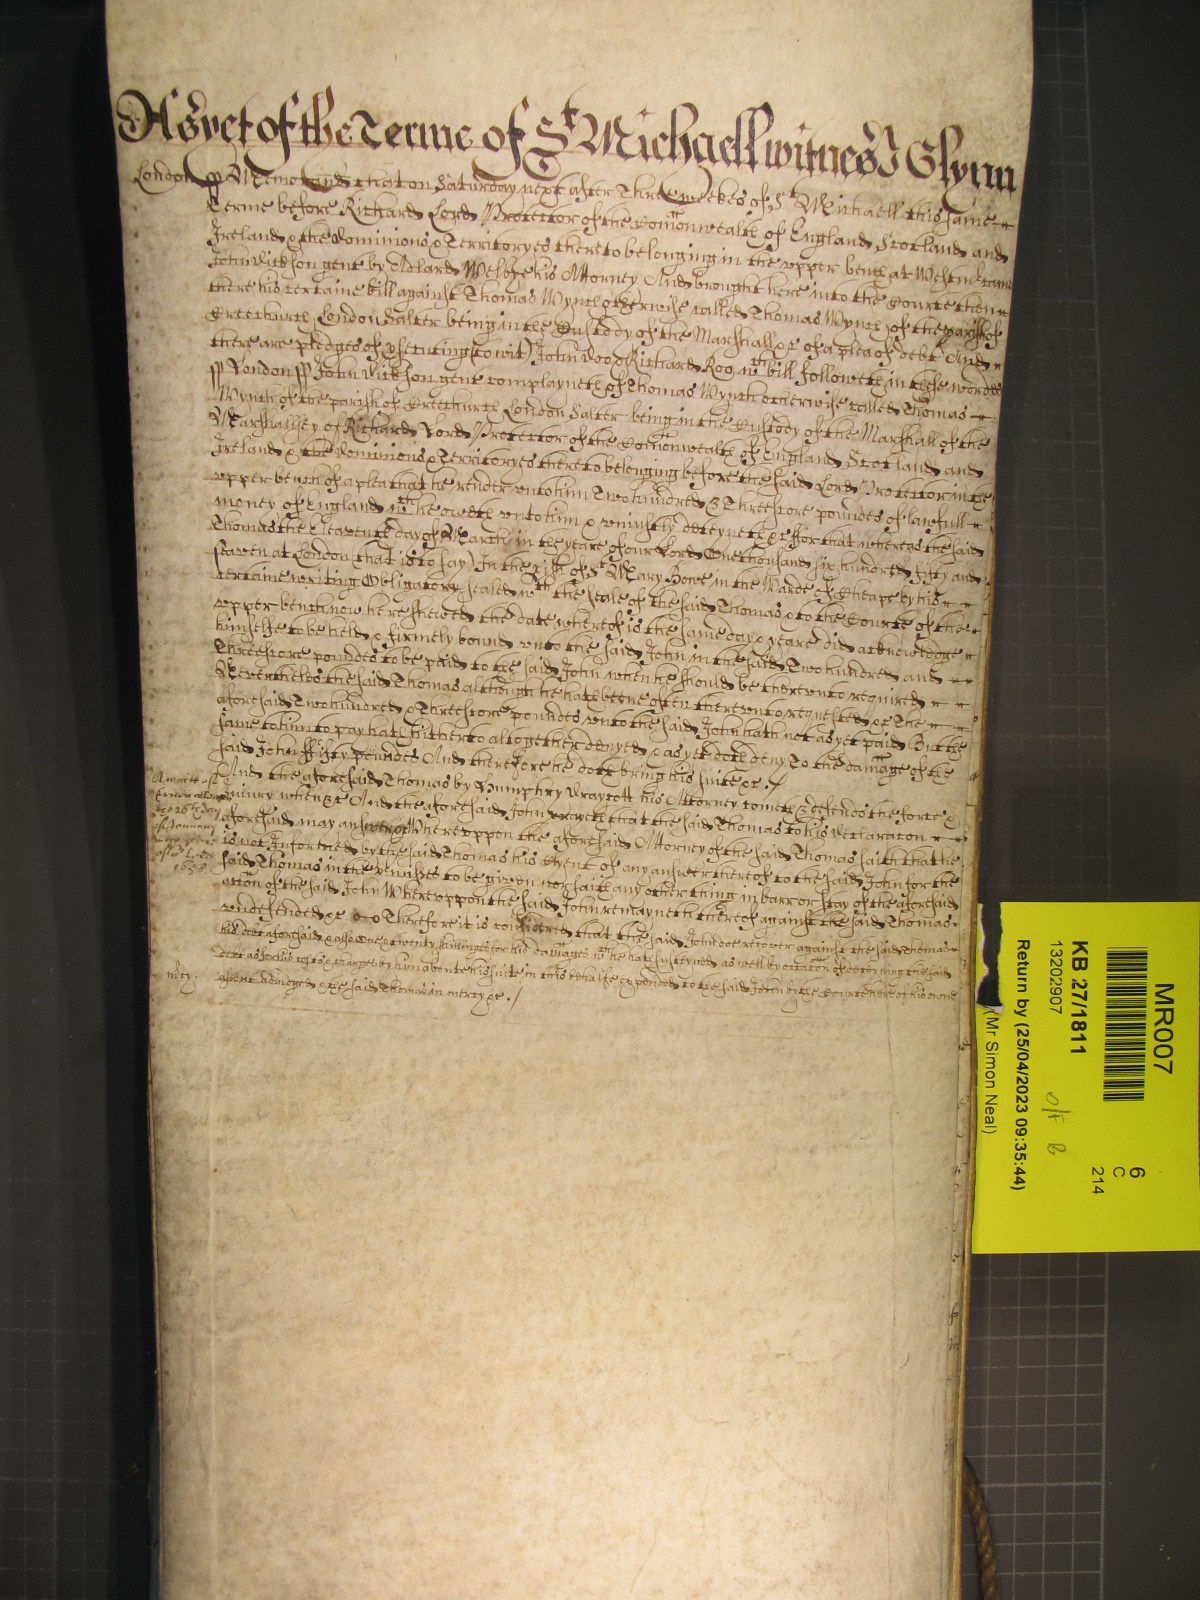 As yet of the Terme of St Michaell witnes J Glynn
London ss Memorand that on Saturday next after Three Weekes of St Michaell this same
Terme before Richard Lord Protector of the Comonwealth of England Scotland and
Ireland & the Dominions & Territoryes thereto belonging in the upper bench at Westm came
John Dickson gent by Adlard Welby his Attorney And brought here into the Courte then
there his certaine bill against Thomas Wynch otherwise called Thomas Wynch of the parish of
Creechurch London Salter being in the Custody of the Marshall &c of a plea of debt And
there are pledges of p'secuting (to wit) John Doo & Richard Roo wch bill followeth in these wordes
ss London ss John Dickson gent complayneth of Thomas Wynch otherwise called Thomas
Wynch of the parish of Creechurch London Salter being in the Custody of the Marshall of the
Marshallsey of Richard Lord Protector of the Comonwealth of England Scotland and
Ireland & the Dominions & Territoryes thereto belonging before the said Lord Protector in the
upper bench of a plea that he render unto him Two hundred & Threescore poundes of lawfull
money of England wch he oweth unto him & uniustly deteyneth &c ffor that whereas the said
Thomas the Eleaventh day of March in the yeare of our Lord One thousand six hundred fifty and
seaven at London (that is to say) In the p'ish of St Mary Bowe in the Warde of Cheape by his
certaine writing Obligatory sealed wth the seale of the said Thomas & to the Courte of the
upper bench now here shewed the date whereof is the same day & yeare did acknowledge
himselfe to be held & firmely bound unto the said John in the said Two hundred and
Threescore poundes to be paid to the said John when he should be thereunto required
Neverthelesse the said Thomas although he hath beene often thereunto requested &c The
aforesaid Two hundred & Threescore poundes unto the said John hath not as yet paid But the
same to him to pay hath hitherto altogether denyed & as yet doth deny To the damage of the
said John ffifty poundes And therefore he doth bring his suite &c
And the aforesaid Thomas by Humphry Draycott his Attorney cometh & defendes the force &
iniury when &c And the aforesaid John prayeth that the said Thomas to his declaracon
aforesaid may answere &c Whereuppon the aforesaid Attorney of the said Thomas saith that he
is not Informed by the said Thomas his Clyent of any answer thereof to the said John for the
said Thomas in the p'misses to be given nor saith any other thing in barr or stay of the aforesaid
accon of the said John Whereuppon the said John remayneth thereof against the said Thomas
undefended &c Therefore it is considered that the said John doe recover against the said Thomas
his debt aforesaid & also One & twenty shillinges for his damages wch he hath susteyned as well by occacon of deteyning the said
debt as for his costs & charges by him about his suite in this behalfe expended to the said John by the Courte here of his owne
assent adiudged & the said Thomas in mercy &c
the 28th day
of January
in the yeare
of or Lord
1658
mcy.
MR007
KB 27/1811
13202907
Return by (25/04/2023 09:35:44)
(Mr Simon Neal)
6
C
214
O/F B